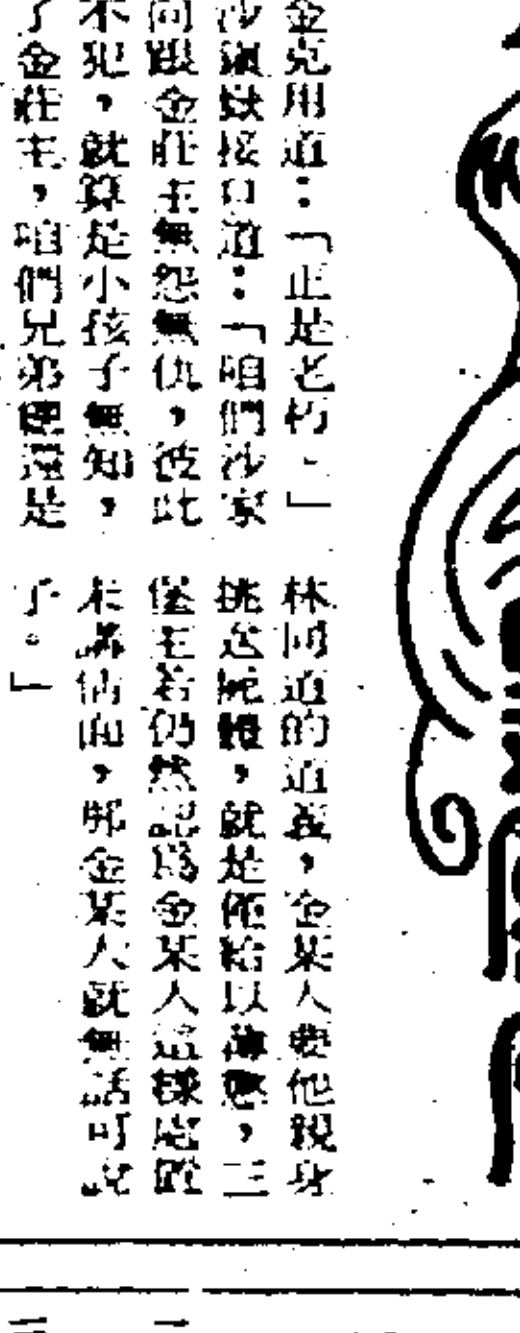 金克用道：「正是老朽。」
沙鎭妖接口道：「咱們沙家
向跟金莊主無怨無仇，彼此
不犯，就算是小孩子無知，
了金莊主，咱們兄弟總還是
林同道的道義，金某人要他親身
挑送屍體，就是極給以薄懲，三
堡主若仍然認爲金某人這樣處置
未講情面，那金某人就無話可說
了。」